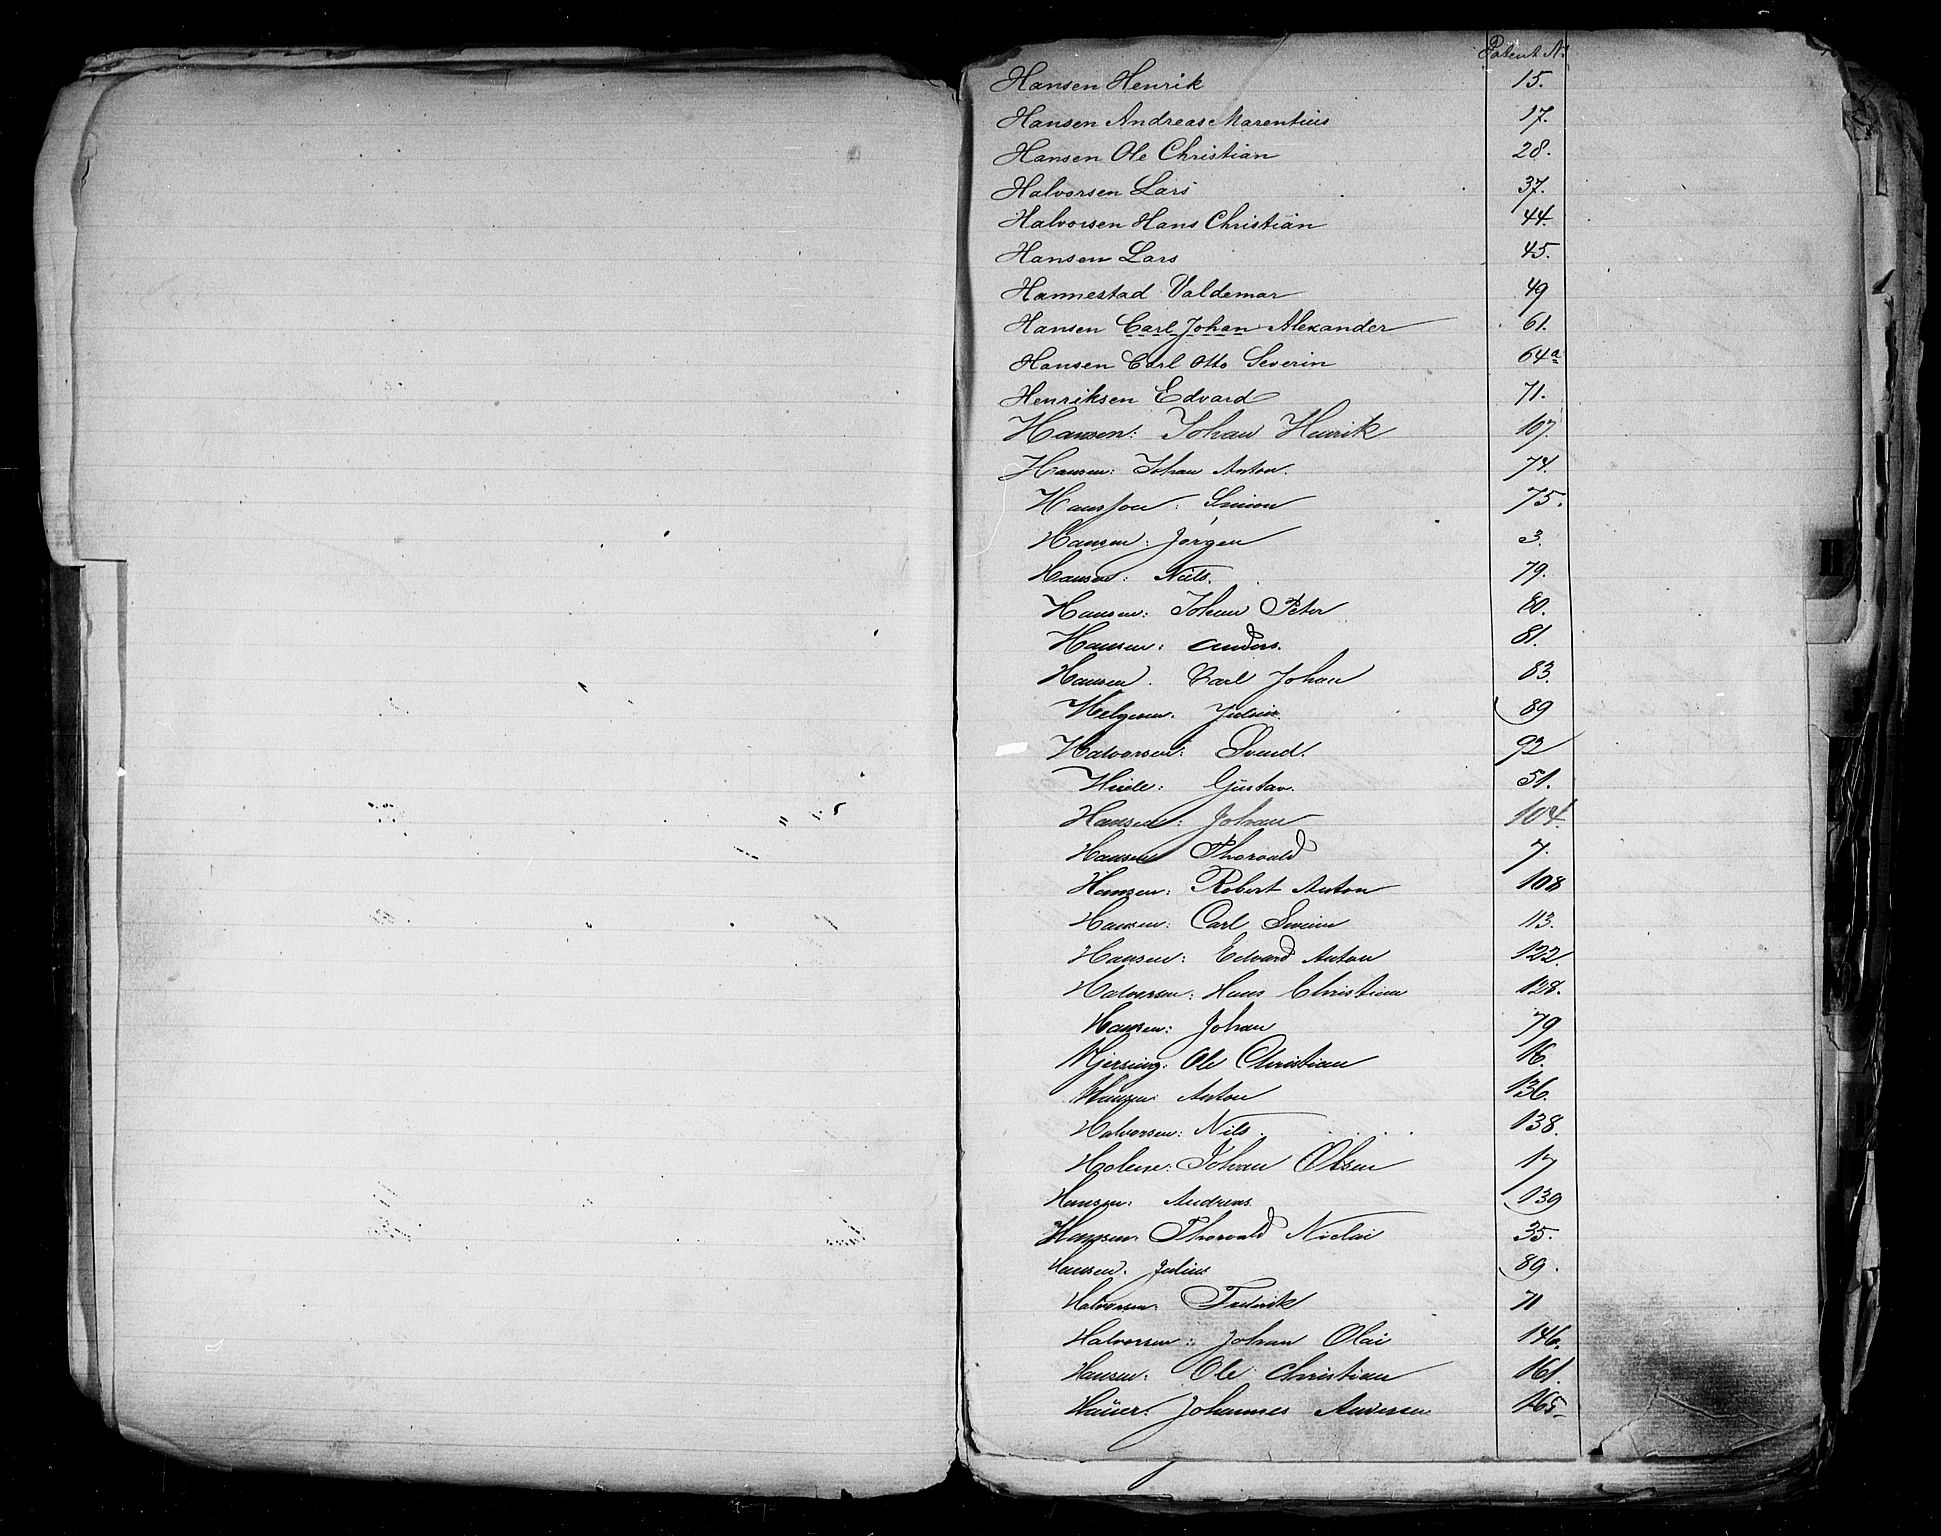 Patent No
Hansen Henrik 15.
Hansen Andreas Marentius 17.
Hansen Ole Christian 28.
Halvorsen Lars 37.
Halvorsen Hans Christian 44.
Hansen Lars 45.
Hannestad Valdemar 49
Hansen Carl Johan Alexander 61.
Hansen Carl Otto Severin 64a
Henriksen Edvard 71.
Hansen: Johan Henrik 107.
Hansen: Johan Anton. 74.
Hansson: Simon 75.
Hansen: Jørgen 3.
Hansen: Niels. 79.
Hansen: Johan Peter 80.
Hansen: Anders. 81.
Hansen. Carl Johan 83.
Helgesen. Julius. 89
Halvorsen: Svend. 92
Hiele: Gustav. 51.
Hansen: Johan 104.
Hansen Thorvald 7.
Hansen: Robert Anton 108
Hansen: Carl Severin 113.
Hansen: Edvard Anton 122.
Halvorsen: Hans Christian 128.
Hansen: Johan 79
Hjersing: Ole Christian 16.
Hansen: Anton 136.
Halvorsen: Nils. 138.
Holene: Johan Olsen 17
Hansen: Andreas. 139
Hansen. Thorvald Nicolai 35.
Hansen. Julius 89.
Halvorsen. Fredrik 71
Halvorsen: Johan Olai 146.
Hansen: Ole Christian 161.
Haüer: Johannes Andersen 165
H